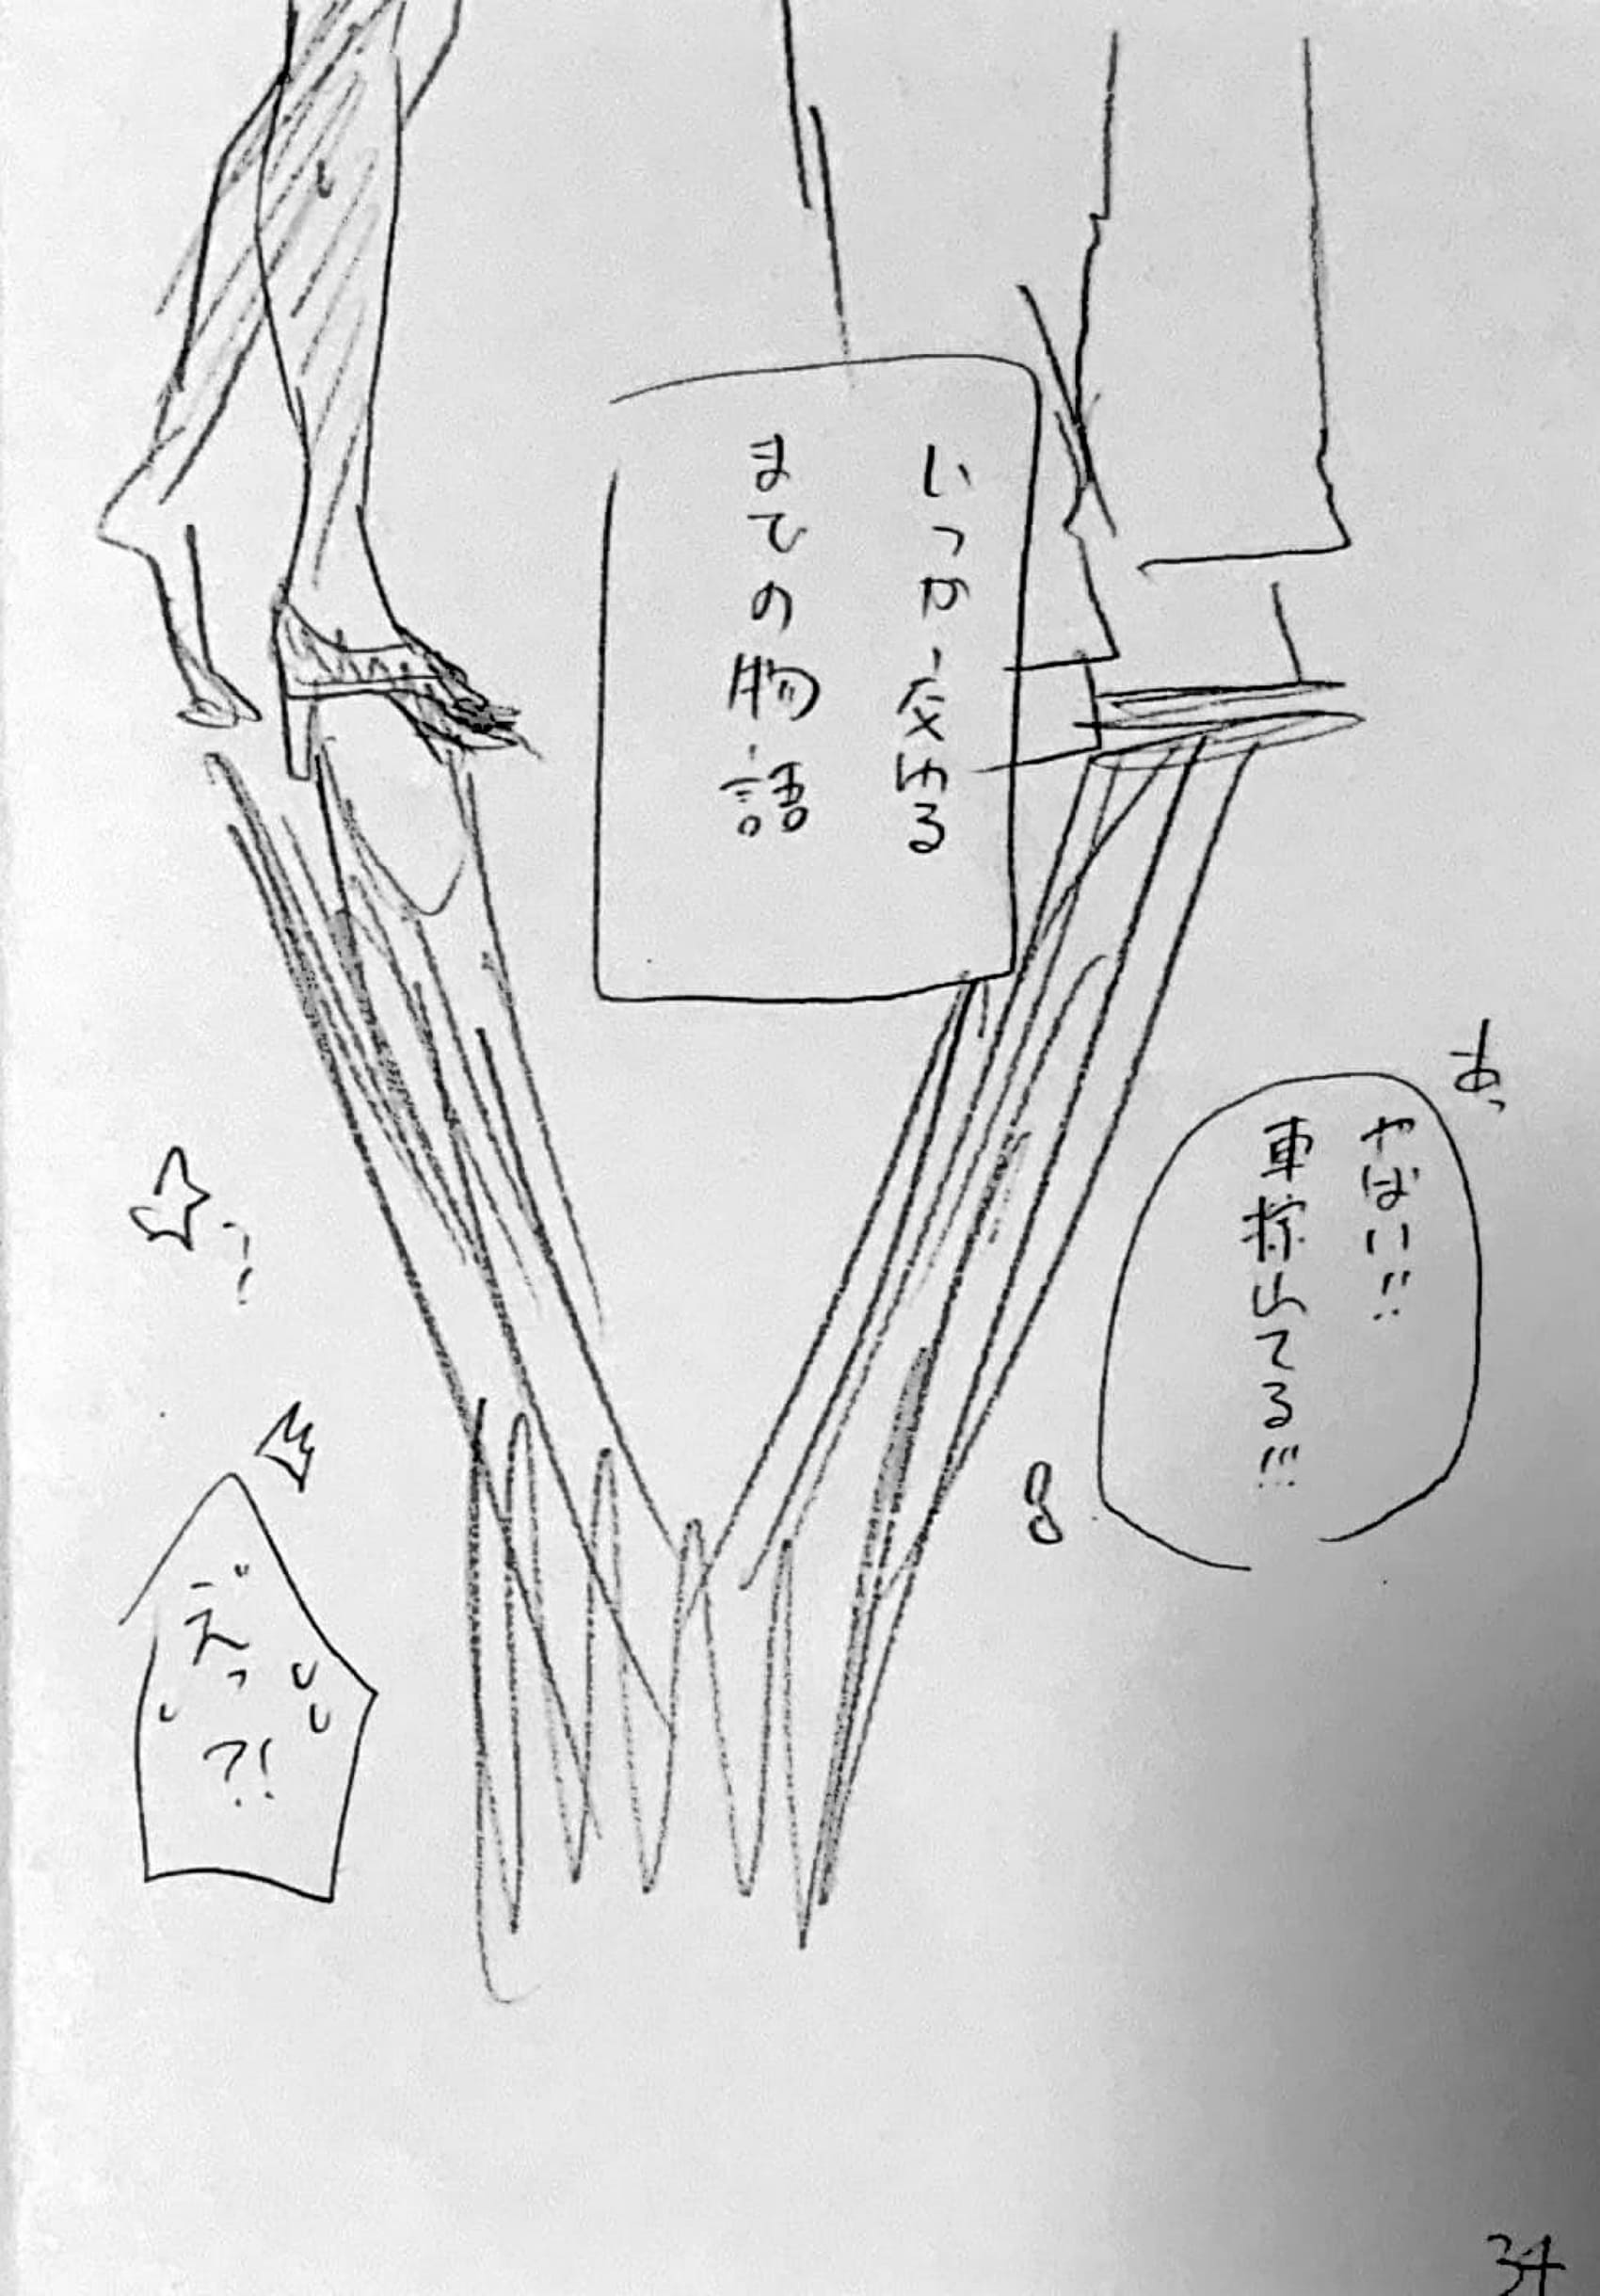 いつか交わる
までの物語
あっ
やばい!!
車探してる!!!
えっ
?!
34